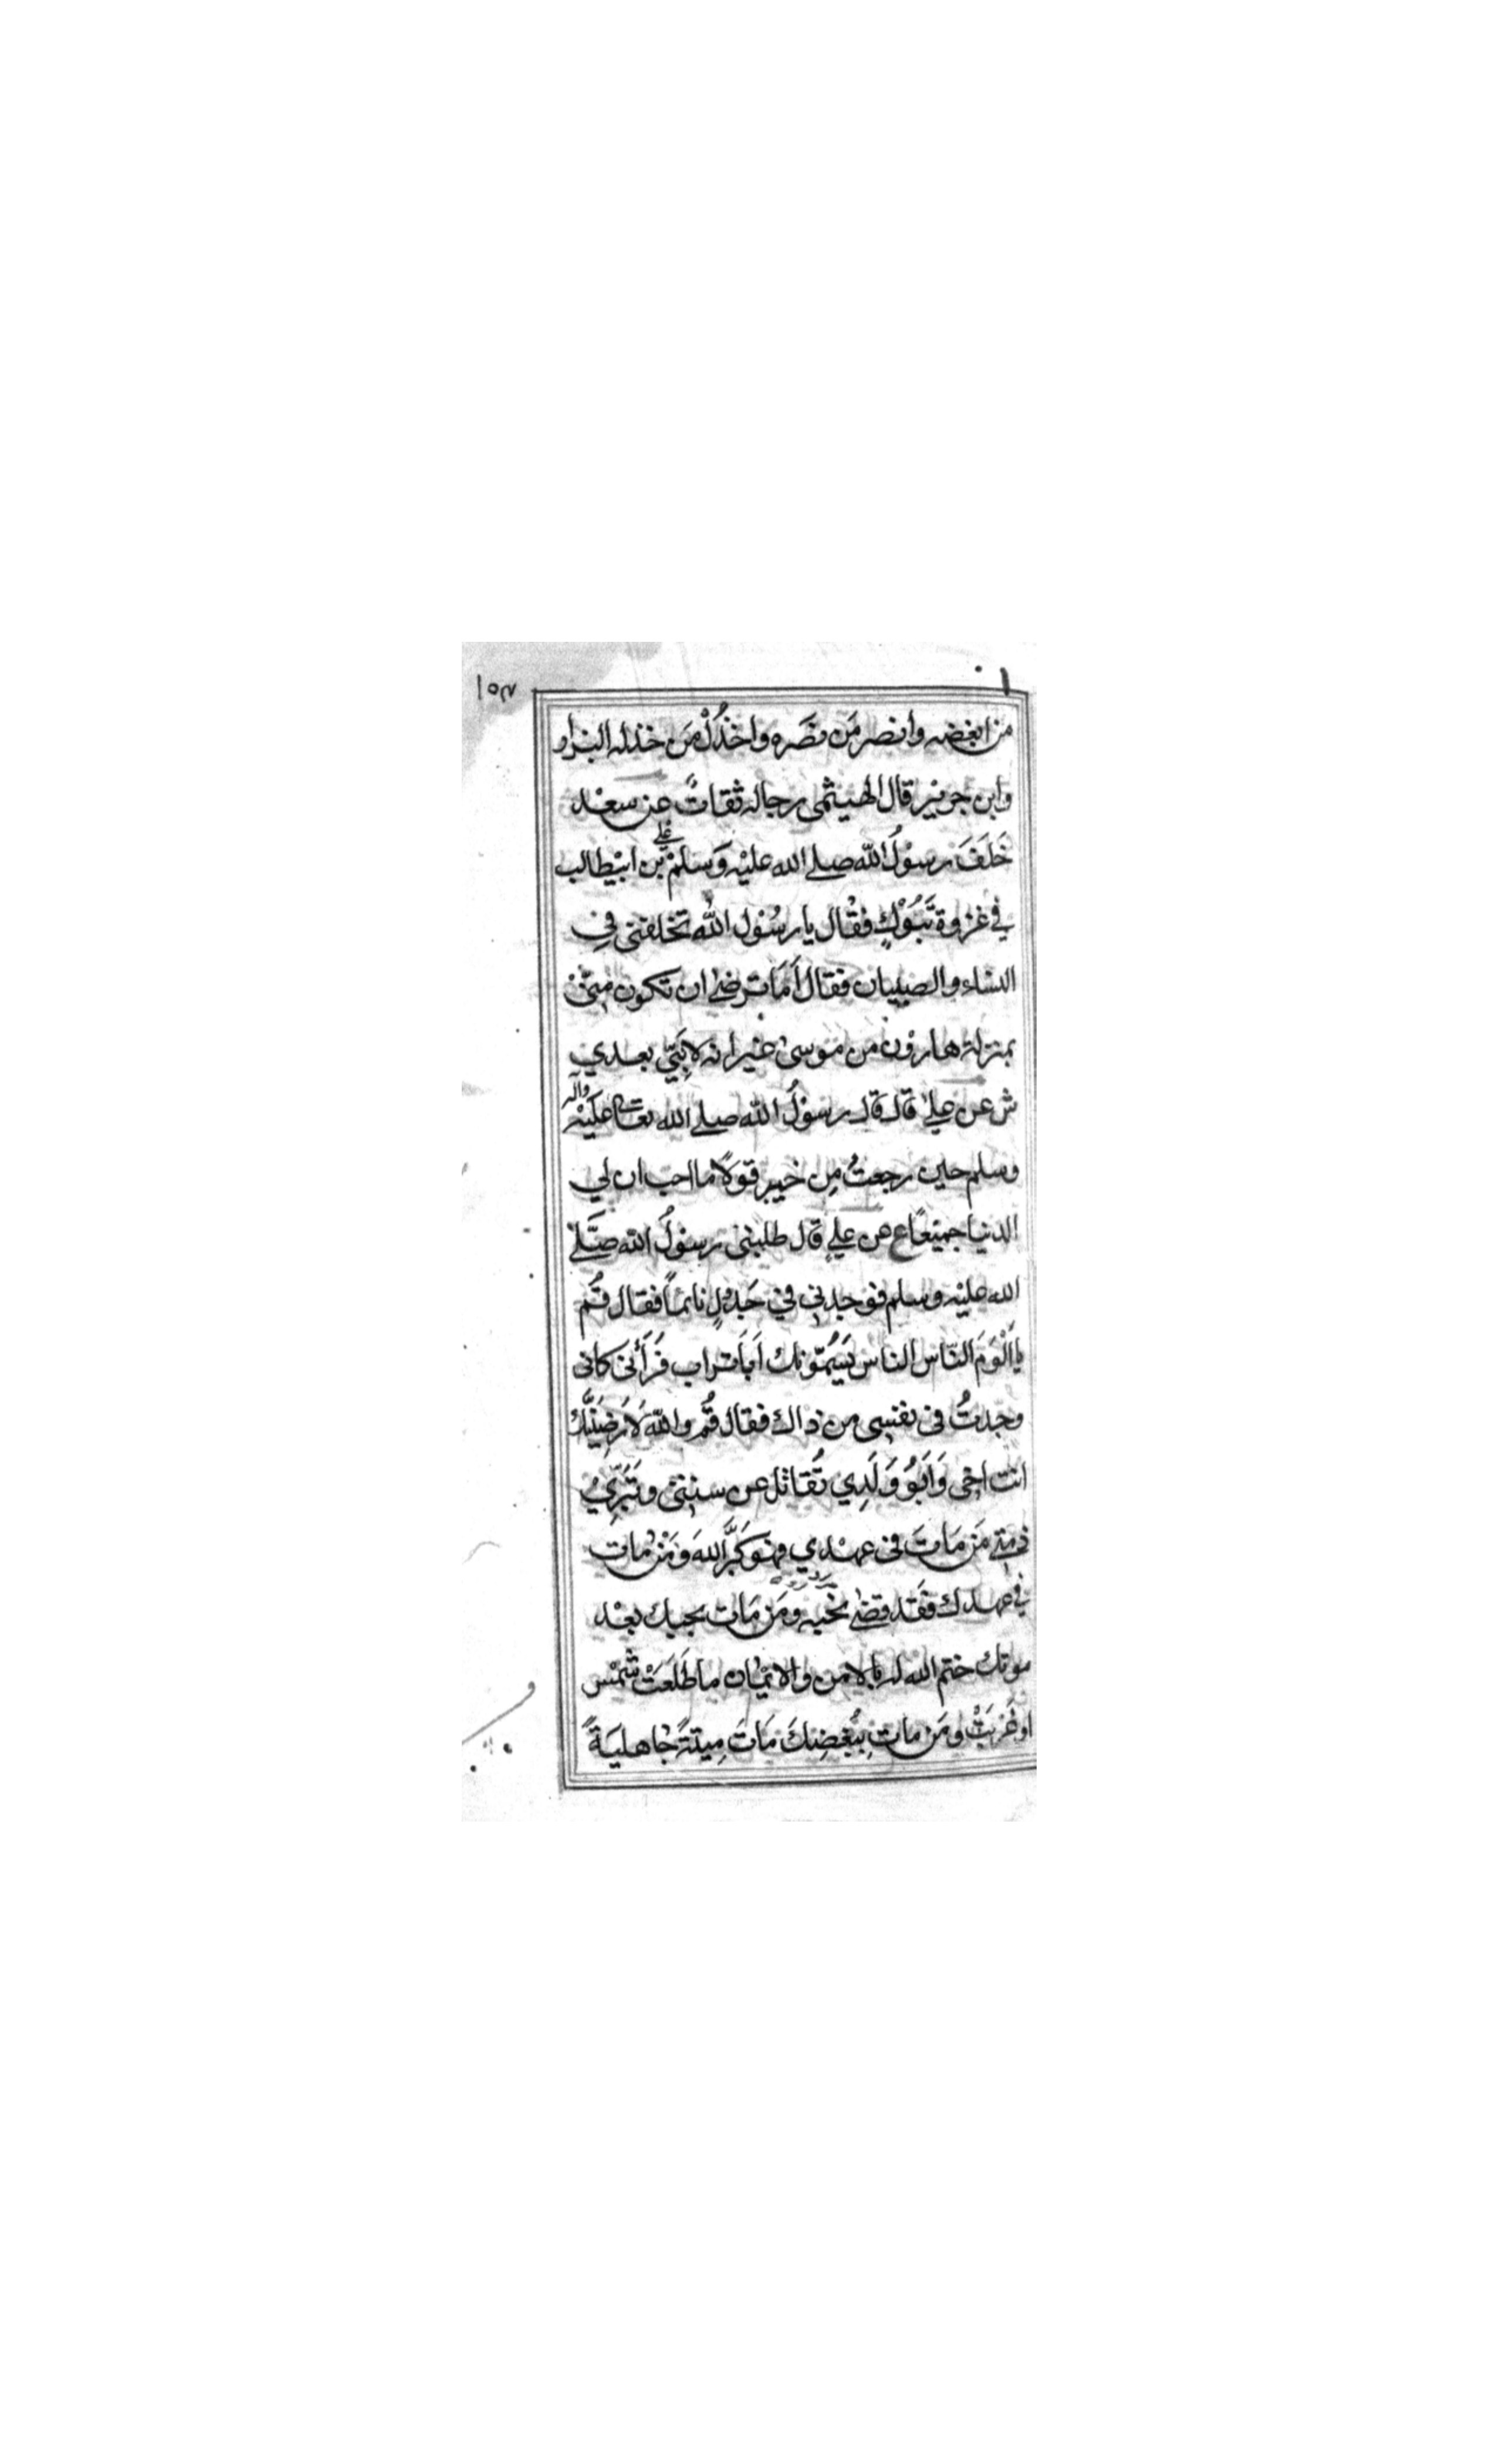 ١٥٧
من ابغضه وانصر مَن نصَره واخذُلْ مَن خذله البزار
وابن جرير قال الهيثمى رجاله ثقاتٌ عن سعْد
خَلَفَ رسوْلُ الله صلى الله عليْه وَسلم علي بن ابيْطالب
في غزوة تَبُوْكٍ فقْال يا رسُوْل الله تخلفنى في
النساء والصبيان فقال أمَا ترضى ان تكون مِنّى
بمنزلة هارون من موسى غير انه لا نبَيّ بعدي
ش عن على قال قال رسوْلُ الله صلى الله تعالى عليْه وآله
وسلم حين رجعتُ مِن خيبر قوْلًا ما احب ان لي
الدنيا جميْعًا ع عن علي قال طلبنى رسوْلُ الله صَلّى
الله عليْه وسلم فوجدنى في جَدْوَلٍ نائمًا فقال قُم
ما ألْوَمَ النّاس الناس يَسُمّونك اَبَا تراب فَرَأنى كانى
وجدتُ فى نفسى من ذالك فقال قُم والله لَاُرضِيَنَّك
انت اخى وَاَبُوْ وَلَدِي تُقاتل عن سنتى وتَبَرِّيُ
ذمتى مَن مَاتَ فى عهْدي فهو كَبَّرَ اللهَ وَمَنْ مات
في عهدك فقَد قضى نحْبَه ومَن مَات بحبك بعْد
موتك ختم الله له بالامن والايمْان ما طَلَعَتْ شمْس
او غَرَبَتْ ومَن مات بِبُغضِكَ مَاتَ مِيتَةً جاهليَةً